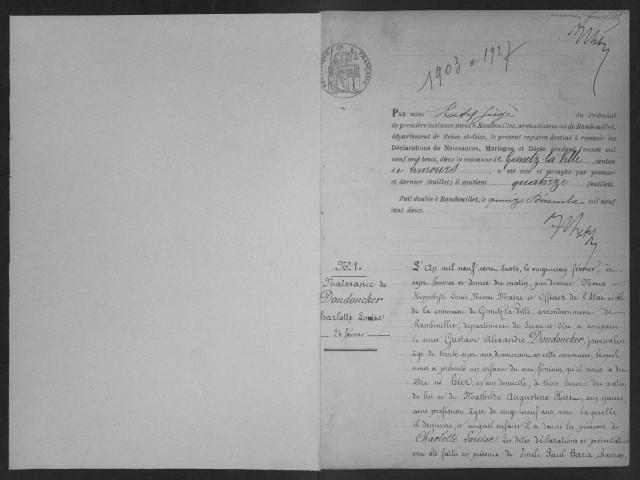 premier feuillet
1903 à 1927
PAR NOUS, Juge du Tribunal
de première instance séant à Rambouillet, arrondissement de Rambouillet,
département de Seine-et-Oise, le présent registre destiné à recevoir les
Déclarations de Naissances, Mariages et Décès pendant l'année mil
neuf cent trois, dans la commune de Gometz-la-Ville, canton
de Limours, a été coté et paraphé par premier
et dernier feuillet; il contient quatorze feuillets.
Fait double à Rambouillet, le quinze Décembre mil neuf
cent deux.
N° 1.
Naissance de
Doudoncker
Charlotte Louise
24 février
L'An mil neuf cent trois, le vingt cinq février, à
sept heures et demie du matin, par devant Nous
Hippolyte Louis Maire et Officier de l'Etat civil
de la commune de Gometz-la-Ville, arrondissement de
Rambouillet, département de Seine et Oise, a comparu
le sieur Gustave Alexandre Doudoncker, journalier
âgé de trente sept ans, demeurant en cette commune, lequel
nous a présenté un enfant du sexe féminin, qu'il nous a dit
être né hier, en son domicile, à trois heures du matin
de lui et de Mathilde Augustine, son épouse,
sans profession, âgée de vingt neuf ans, avec laquelle
il demeure, et auquel enfant il a donné les prénoms de
Charlotte Louise. Les dites déclarations et présentation
ont été faites en présence de Emile Paul Bara, charron,